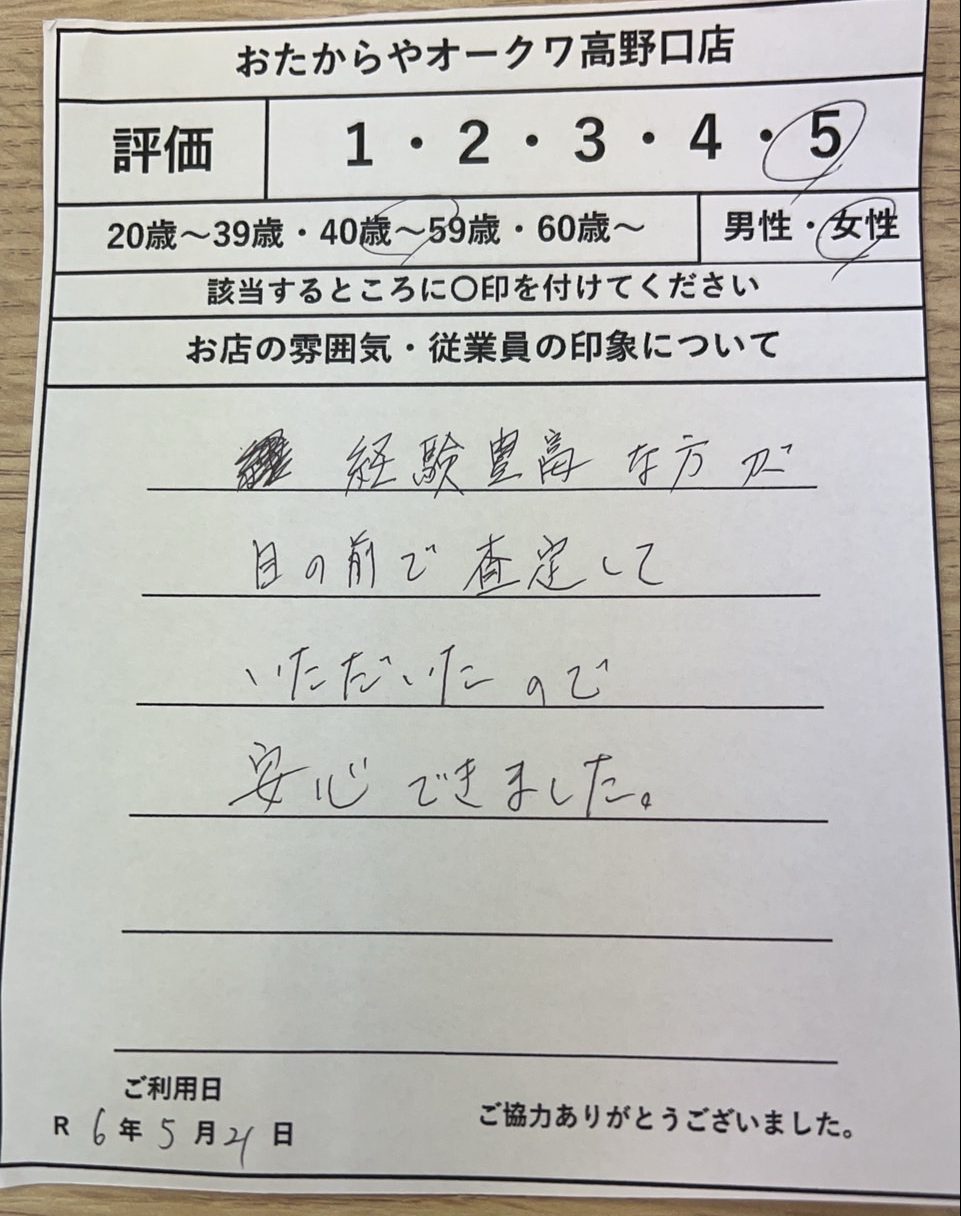 おたからやオークワ高野口店
評価 1・2・3・4・5
20歳～39歳・40歳～59歳・60歳～ 男性・女性
該当するところに〇印を付けてください
お店の雰囲気・従業員の印象について
経験豊富な方が
目の前で査定して
いただいたので
安心できました。
ご利用日
R 6年5月21日 ご協力ありがとうございました。